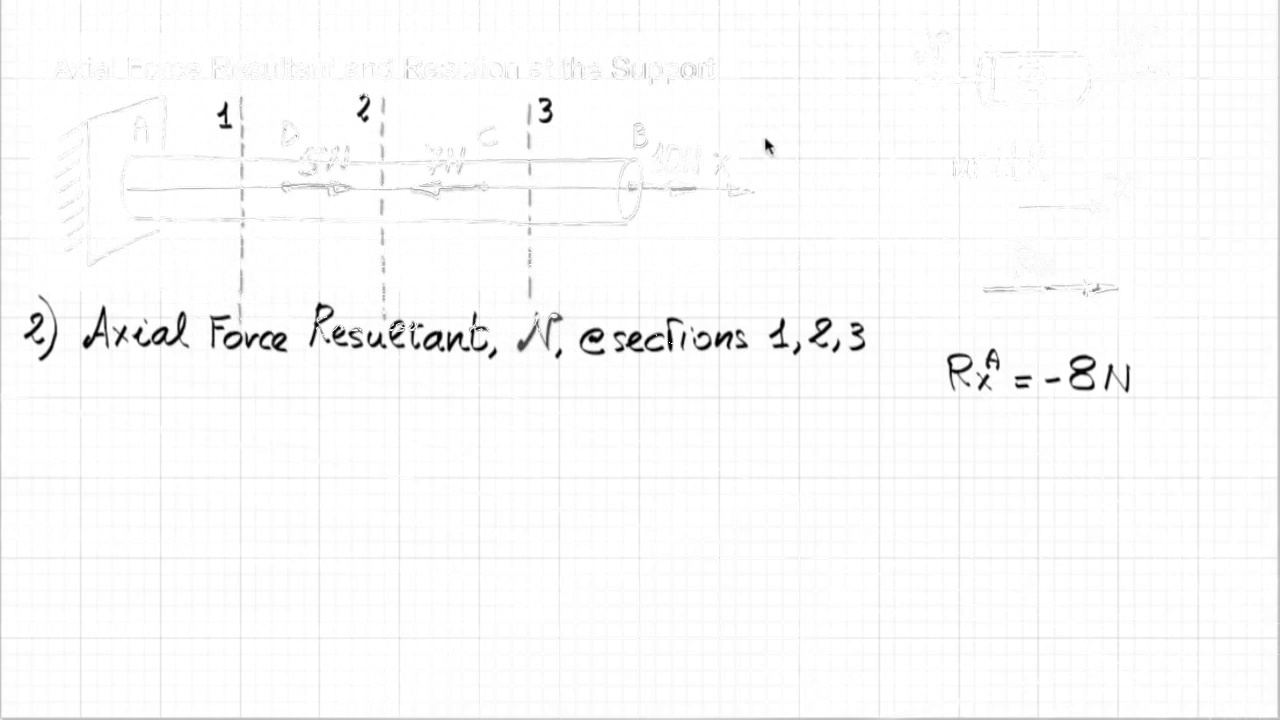 Axial Force Resultant and Reaction at the Support
1 2 3
A D C B
5N 7N 10N x
2) Axial Force Resultant, N, @ sections 1, 2, 3
Rx^A = -8N